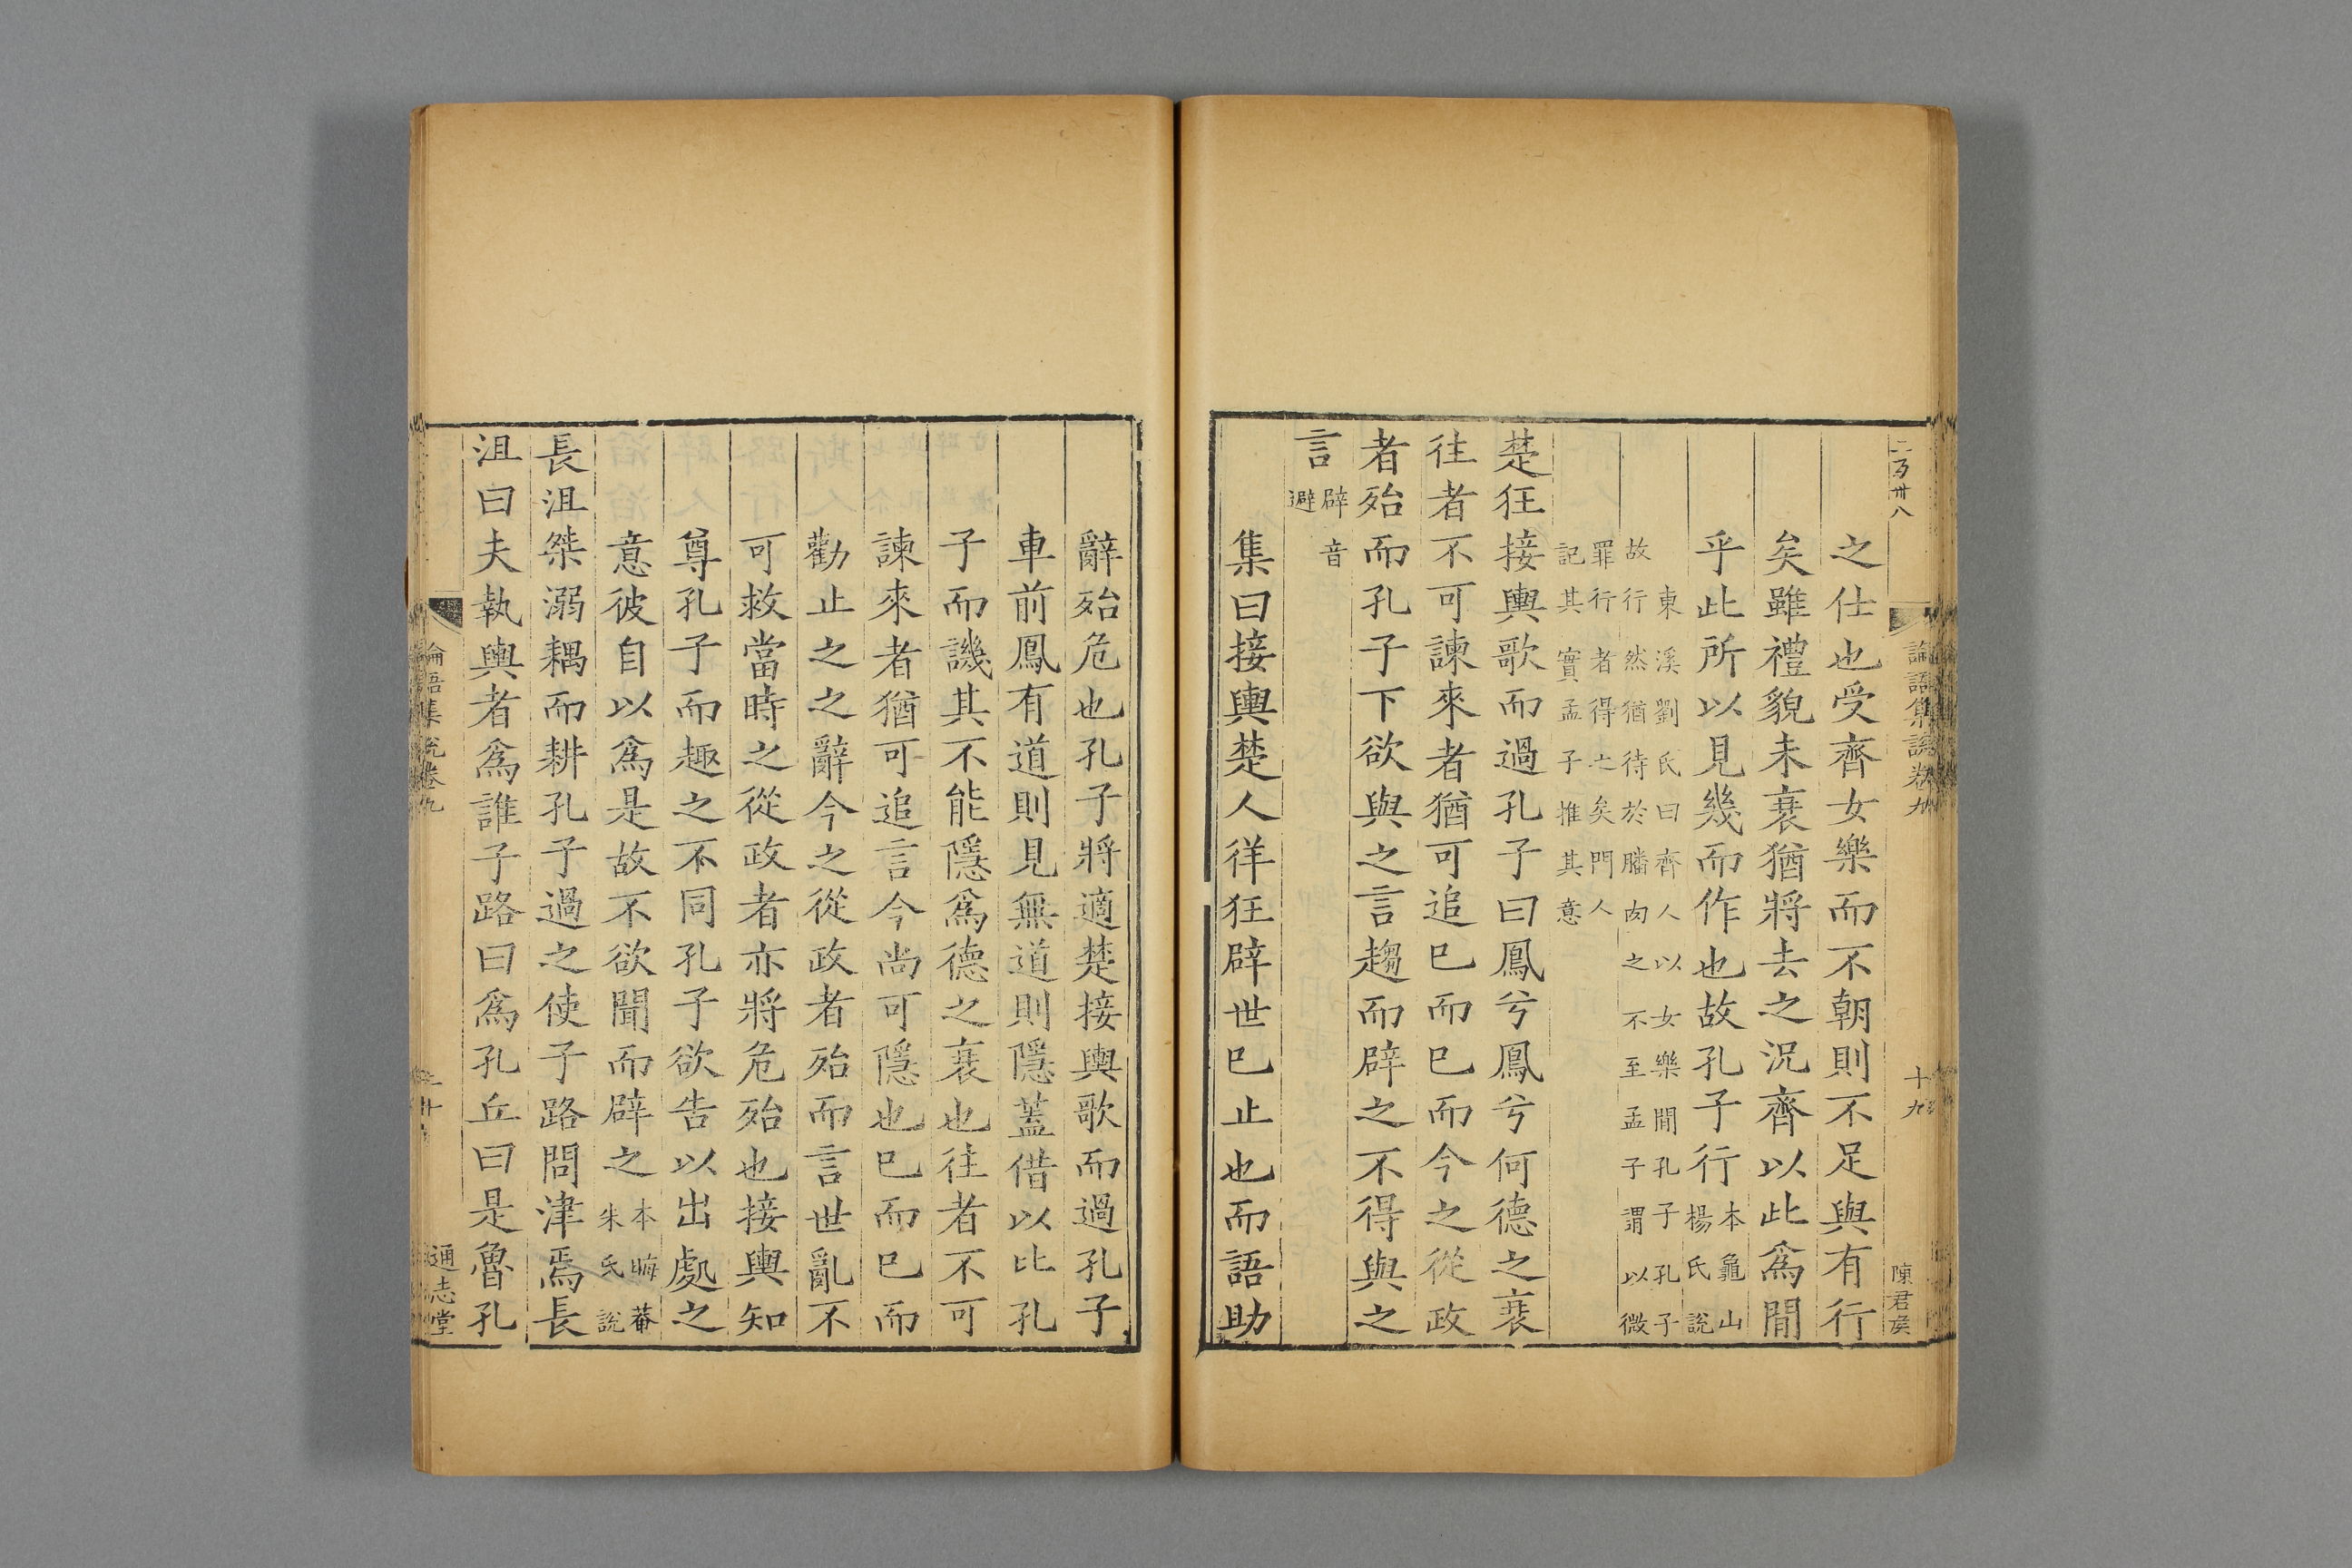 二百卅八
論語集說卷九
十九
陳君矦
之仕也受齊女樂而不朝則不足與有行
矣雖禮貌未衰猶將去之況齊以此爲間
乎此所以見幾而作也故孔子行本龜山楊氏說
東溪劉氏曰齊人以女樂間孔子孔子
故行然猶待於膰肉之不至孟子謂以微
罪行者得之矣門人
記其實孟子推其意
楚狂接輿歌而過孔子曰鳳兮鳳兮何德之衰
往者不可諫來者猶可追已而已而今之從政
者殆而孔子下欲與之言趨而辟之不得與之
言辟音避
集曰接輿楚人徉狂辟世已止也而語助
辭殆危也孔子將適楚接輿歌而過孔子
車前鳳有道則見無道則隱蓋借以比孔
子而譏其不能隱爲德之衰也往者不可
諫來者猶可追言今尚可隱也已而已而
勸止之之辭今之從政者殆而言世亂不
可救當時之從政者亦將危殆也接輿知
尊孔子而趣之不同孔子欲告以出處之
意彼自以爲是故不欲聞而辟之本晦菴朱氏說
長沮桀溺耦而耕孔子過之使子路問津焉長
沮曰夫執輿者爲誰子路曰爲孔丘曰是魯孔
論語集說卷九
二十
通志堂